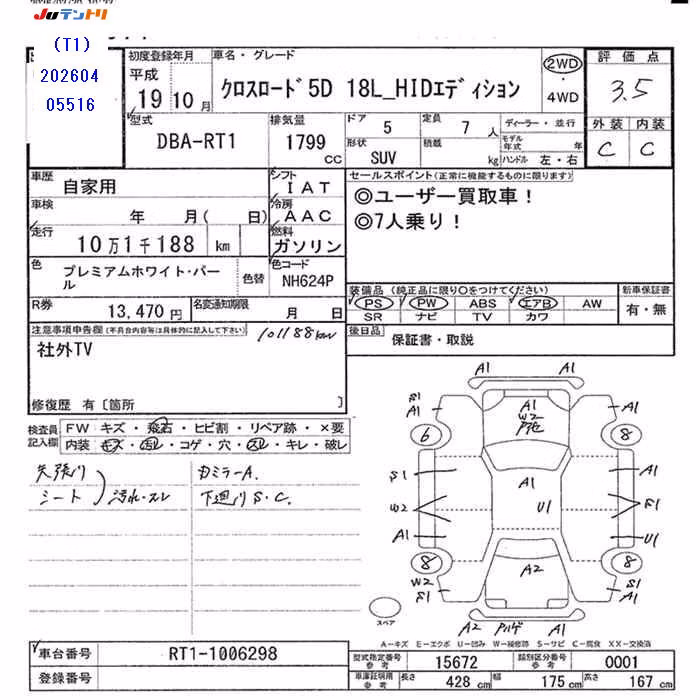 JUテントリ
(T1)
202604
05516
初度登録年月
平成
19 10 月
車名・グレード
クロスロード 5D 18L_HIDエディション
2WD
・
4WD
評価点
3.5
外装 内装
C C
型式
DBA-RT1
排気量
1799
CC
ドア
5
定員
7 人
形状
SUV
積載
kg
ディーラー・並行
モデル年式 年
ハンドル 左・右
車歴
自家用
シフト
I AT
車検
年 月( 日)
冷房
AAC
走行
10万1千188 km
燃料
ガソリン
色
プレミアムホワイト・パール
色替
色コード
NH624P
R券
13,470 円
名変通知期限
月 日
セールスポイント(正常に機能するものに限ります)
◎ユーザー買取車!
◎7人乗り!
装備品 (純正品に限り○をつけてください)
PS PW ABS エアB AW
SR ナビ TV カワ
新車保証書
有・無
後日品
保証書・取説
注意事項申告欄(不具合内容等は具体的に記入して下さい)
101188km
社外TV
修復歴 有〔箇所 〕
検査員記入欄
FW キズ・飛石・ヒビ割・リペア跡・×要
内装 キズ・汚れ・コゲ・穴・スレ・キレ・破レ
天張り
シート
汚れ・スレ
カミラーA.
下廻りS.C.
A1
A1
S1
A1
A1
W2
A1
6
8
S1
A1
A1
W2
U1
S1
A1
U1
8
8
W2
S1
A2
S1
A1
スペア
A2
A1
A-キズ E-エクボ U-凹み W-補修跡 S-サビ C-腐食 XX-交換済
車台番号
RT1-1006298
登録番号
型式指定番号
参考
15672
類別区分番号
参考
0001
車庫証明用
参考
長さ
428 cm
幅
175 cm
高さ
167 cm